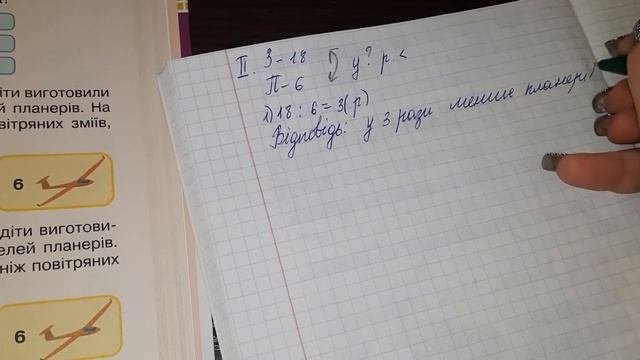 діти виготовили
й планерів. На
вітряних зміїв,
6
діти виготови-
делей планерів.
ніж повітряних
6
II. З-18
П-6
у ? р. <
1) 18 : 6 = 3 (р)
Відповідь: у 3 рази менше планерів